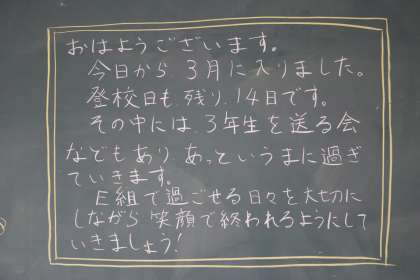 おはようございます。
今日から3月に入りました。
登校日も残り14日です。
その中には3年生を送る会
などもあり あっというまに過ぎ
ていきます。
E組で過ごせる日々を大切に
しながら笑顔で終われるようにして
いきましょう!